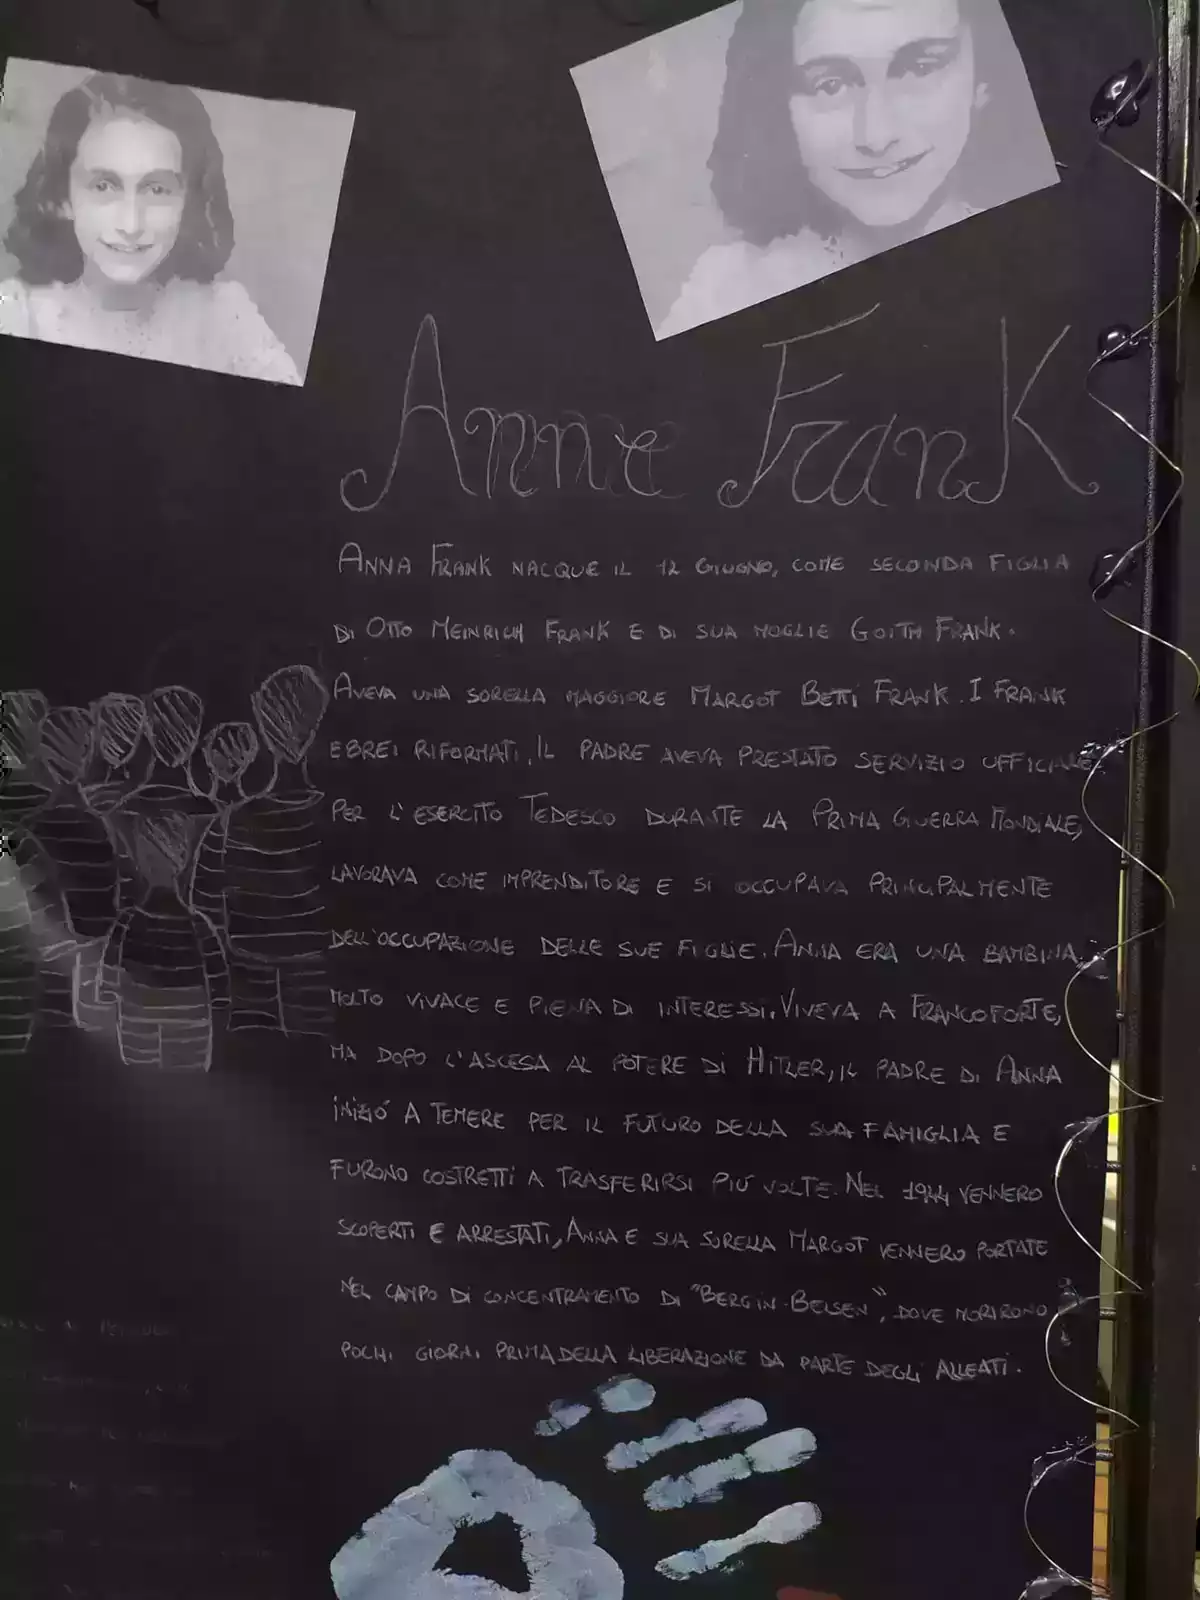 Anne Frank
ANNA FRANK NACQUE IL 12 GIUGNO, COME SECONDA FIGLIA
DI OTTO HEINRICH FRANK E DI SUA MOGLIE GOITH FRANK.
AVEVA UNA SORELLA MAGGIORE MARGOT BETTI FRANK. I FRANK
EBREI RIFORMATI. IL PADRE AVEVA PRESTATO SERVIZIO UFFICIALE
PER L'ESERCITO TEDESCO DURANTE LA PRIMA GUERRA MONDIALE,
LAVORAVA COME IMPRENDITORE E SI OCCUPAVA PRINCIPALMENTE
DELL'OCCUPAZIONE DELLE SUE FIGLIE. ANNA ERA UNA BAMBINA
MOLTO VIVACE E PIENA DI INTERESSI. VIVEVA A FRANCOFORTE,
MA DOPO L'ASCESA AL POTERE DI HITLER, IL PADRE DI ANNA
INIZIÓ A TEMERE PER IL FUTURO DELLA SUA FAMIGLIA E
FURONO COSTRETTI A TRASFERIRSI PIÚ VOLTE. NEL 1944 VENNERO
SCOPERTI E ARRESTATI, ANNA E SUA SORELLA MARGOT VENNERO PORTATE
NEL CAMPO DI CONCENTRAMENTO DI "BERGIN-BELSEN", DOVE MORIRONO
POCHI GIORNI PRIMA DELLA LIBERAZIONE DA PARTE DEGLI ALLEATI.